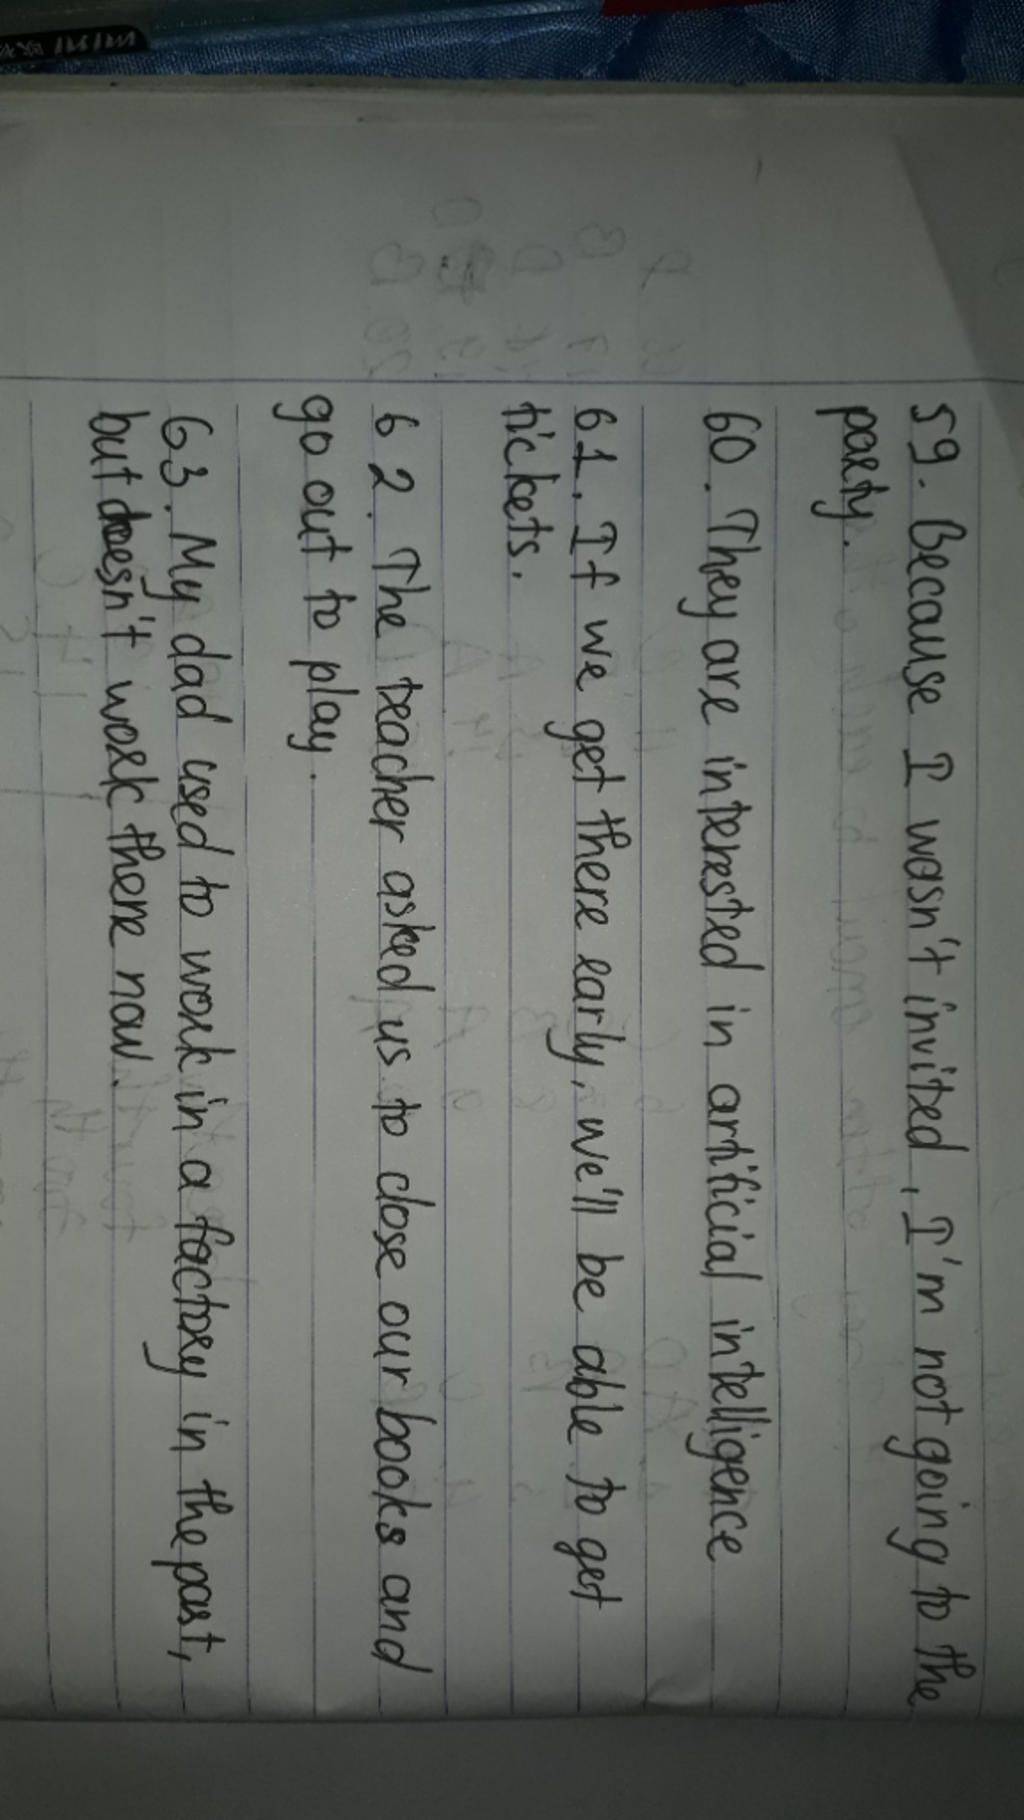 59. Because I wasn't invited, I'm not going to the
party.
60. They are interested in artificial intelligence
61. If we get there early, we'll be able to get
tickets.
62. The teacher asked us to close our books and
go out to play.
63. My dad used to work in a factory in the past,
but doesn't work there now.